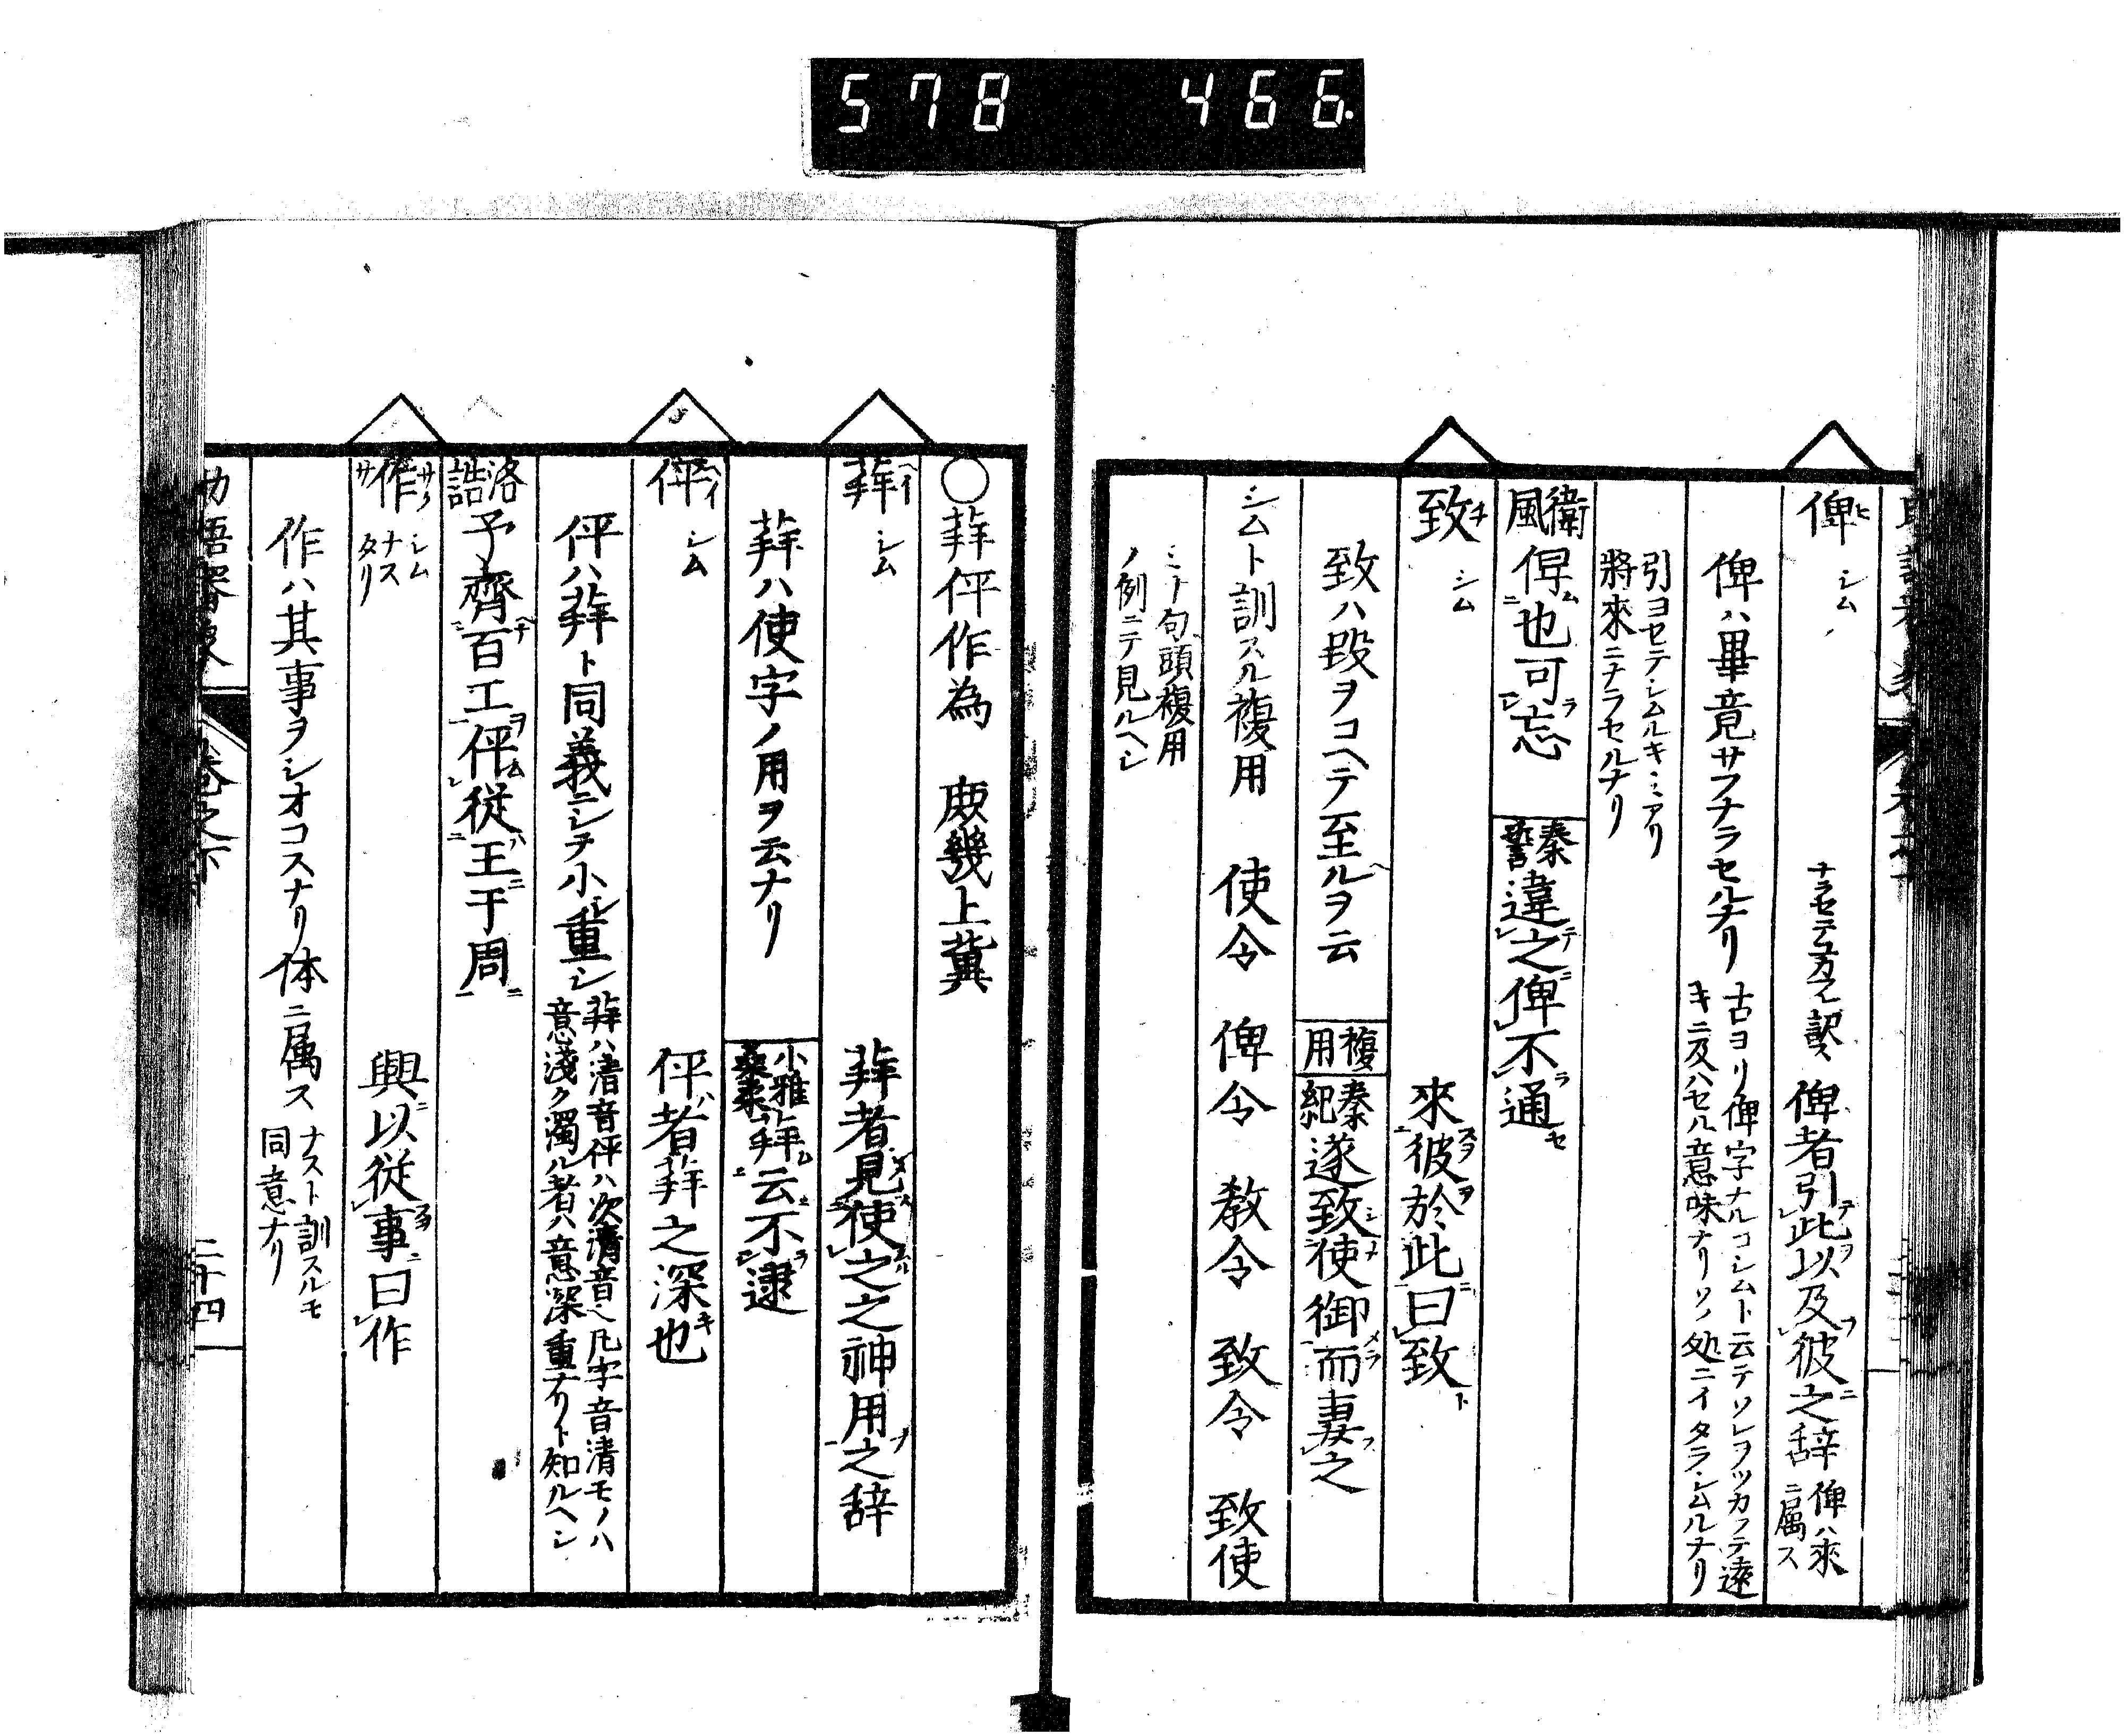 578 466.
俾 ヒ シム ナラセテ 俾者引此以及彼之辞 俾ハ来ニ属ス
俾ハ畢竟サフナラセルナリ 古ヨリ俾字ナルコシムト云テソレヲツカフテ遠キニ及ハセル意味ナリソノ処ニイタラシムルナリ
引ヨセテシムルキミアリ將來ニナラセルナリ
衛風 俾也可忘 秦誓 違之俾不通
致 チ シム 來彼於此曰致
致ハ段ヲコヘテ至ルヲ云 複用 秦紀 遂致使御而妻之
シムト訓スル複用 使令 俾令 教令 致令 致使
ミナ句頭複用ノ例ニテ見ルヘシ
○拜伻作為 庶幾上冀
拜 ヘイ シム 拜者見使之之神用之辞
拜ハ使字ノ用ヲ云ナリ 小雅桑柔 拜云不逮
伻 ヘイ シム 伻者拜之深也
伻ハ拜ト同義ニシテ小シ重シ 拜ハ清音伻ハ次清音凡字音清モノハ意淺ク濁ル者ハ意深重ナリト知ルヘシ
洛誥 予齊百工伻従王于周
作 サク サ シム ナス タリ 興以従事曰作
作ハ其事ヲシオコスナリ体ニ属ス ナスト訓スルモ同意ナリ
二十四